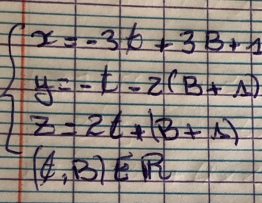 x = -3t + 3B + 1
y = -t - 2(B + 1)
z = 2t + (B + 1)
(t, B) ∈ ℝ